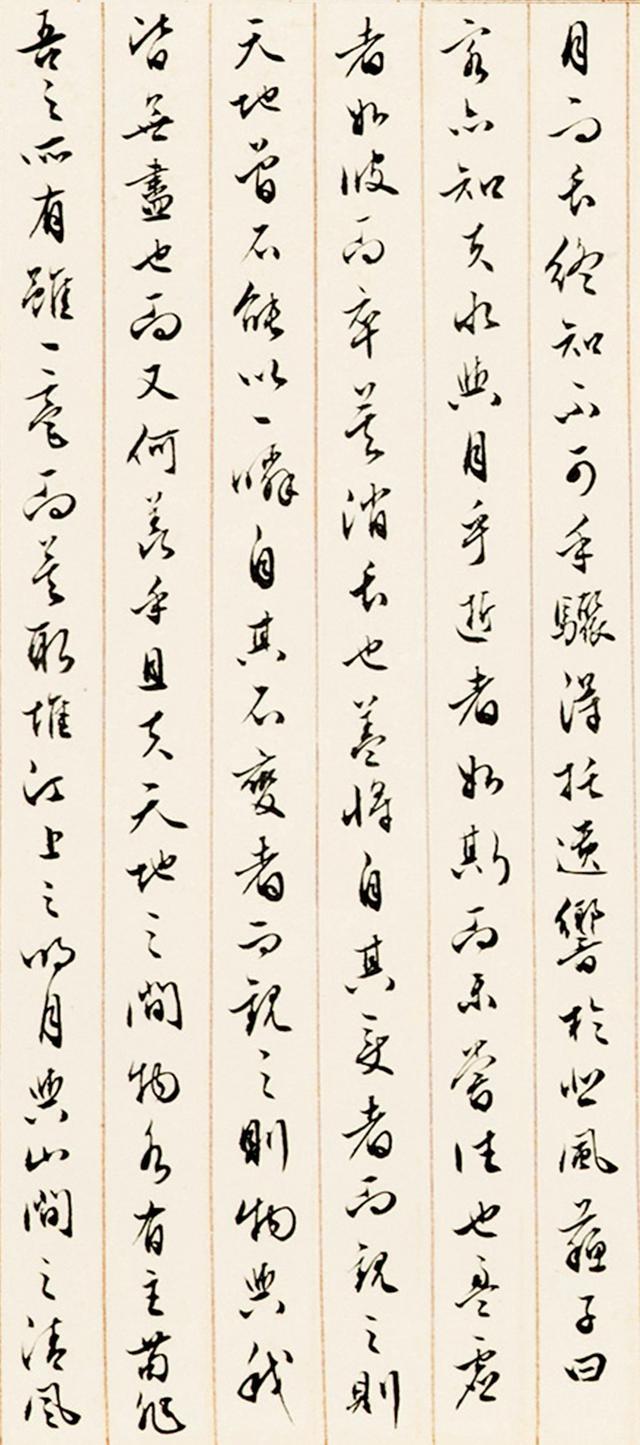 月而長終知不可乎驟得托遺響於悲風蘇子曰
客亦知夫水與月乎逝者如斯而未嘗往也盈虛
者如彼而卒莫消長也蓋將自其變者而觀之則
天地曾不能以一瞬自其不變者而觀之則物與我
皆無盡也而又何羨乎且夫天地之間物各有主苟非
吾之所有雖一毫而莫取惟江上之明月與山間之清風